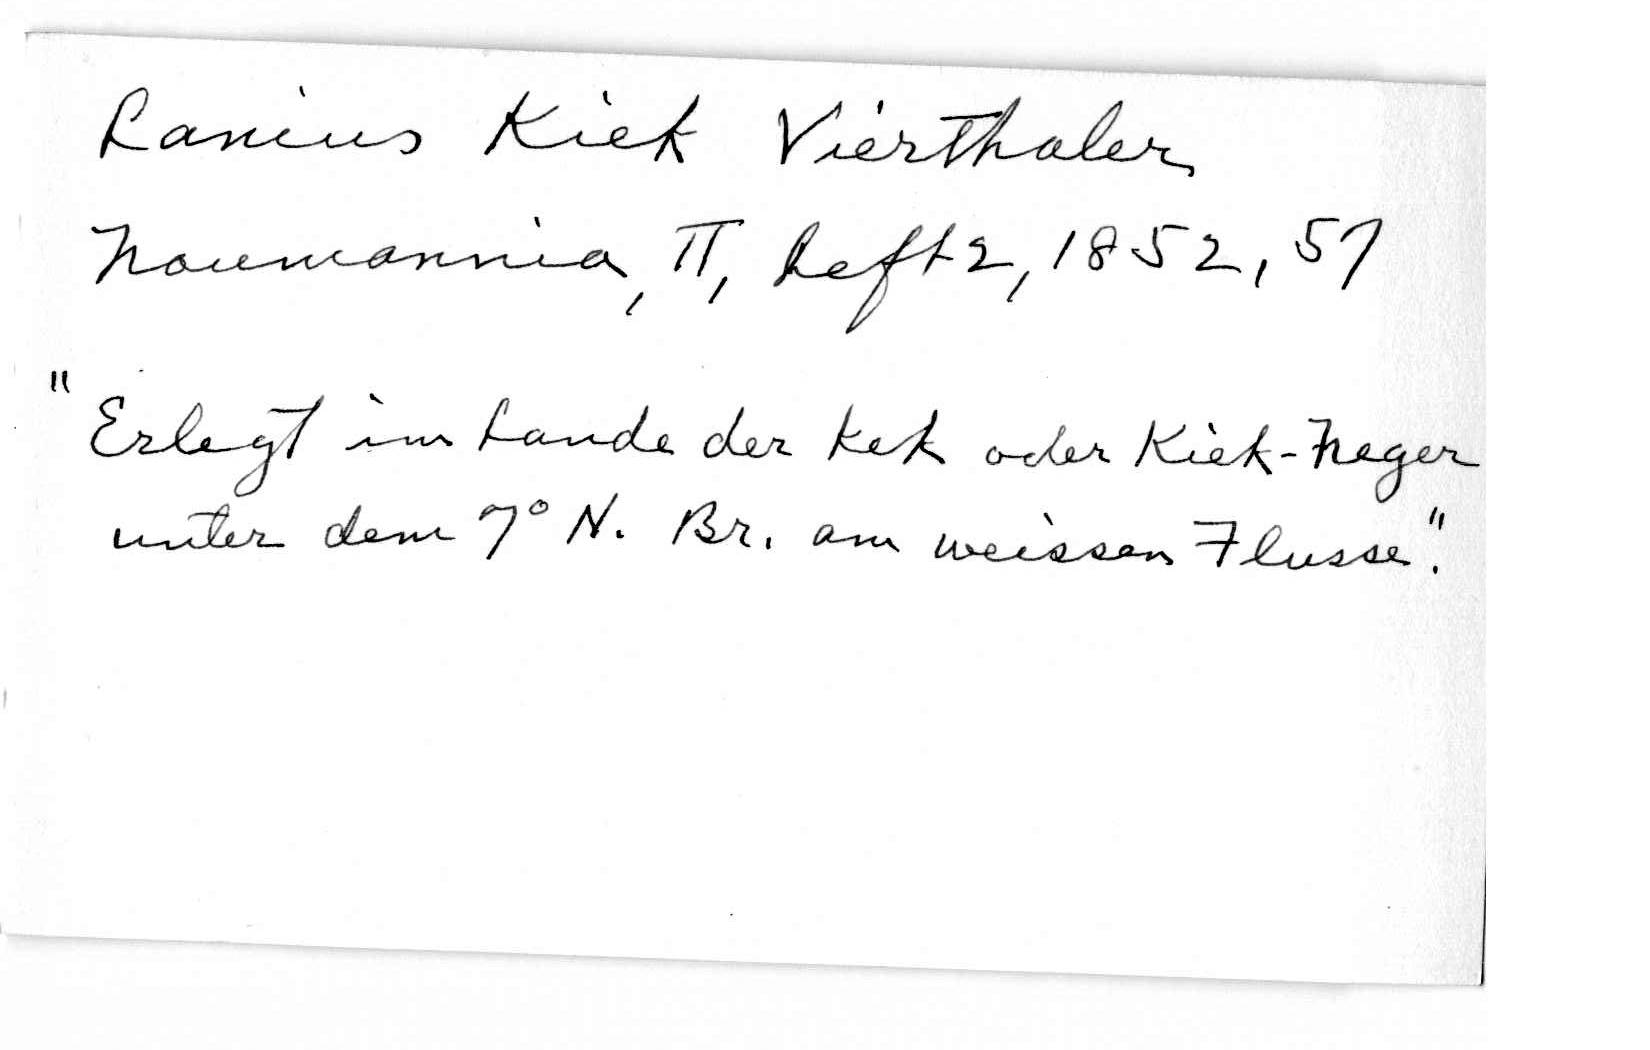 Lanius Kiek Vierthaler
Naumannia, II, Heft 2, 1852, 57
"Erlegt im Lande der Kek oder Kiek-Neger
unter dem 7° N. Br. am weissen Flusse".